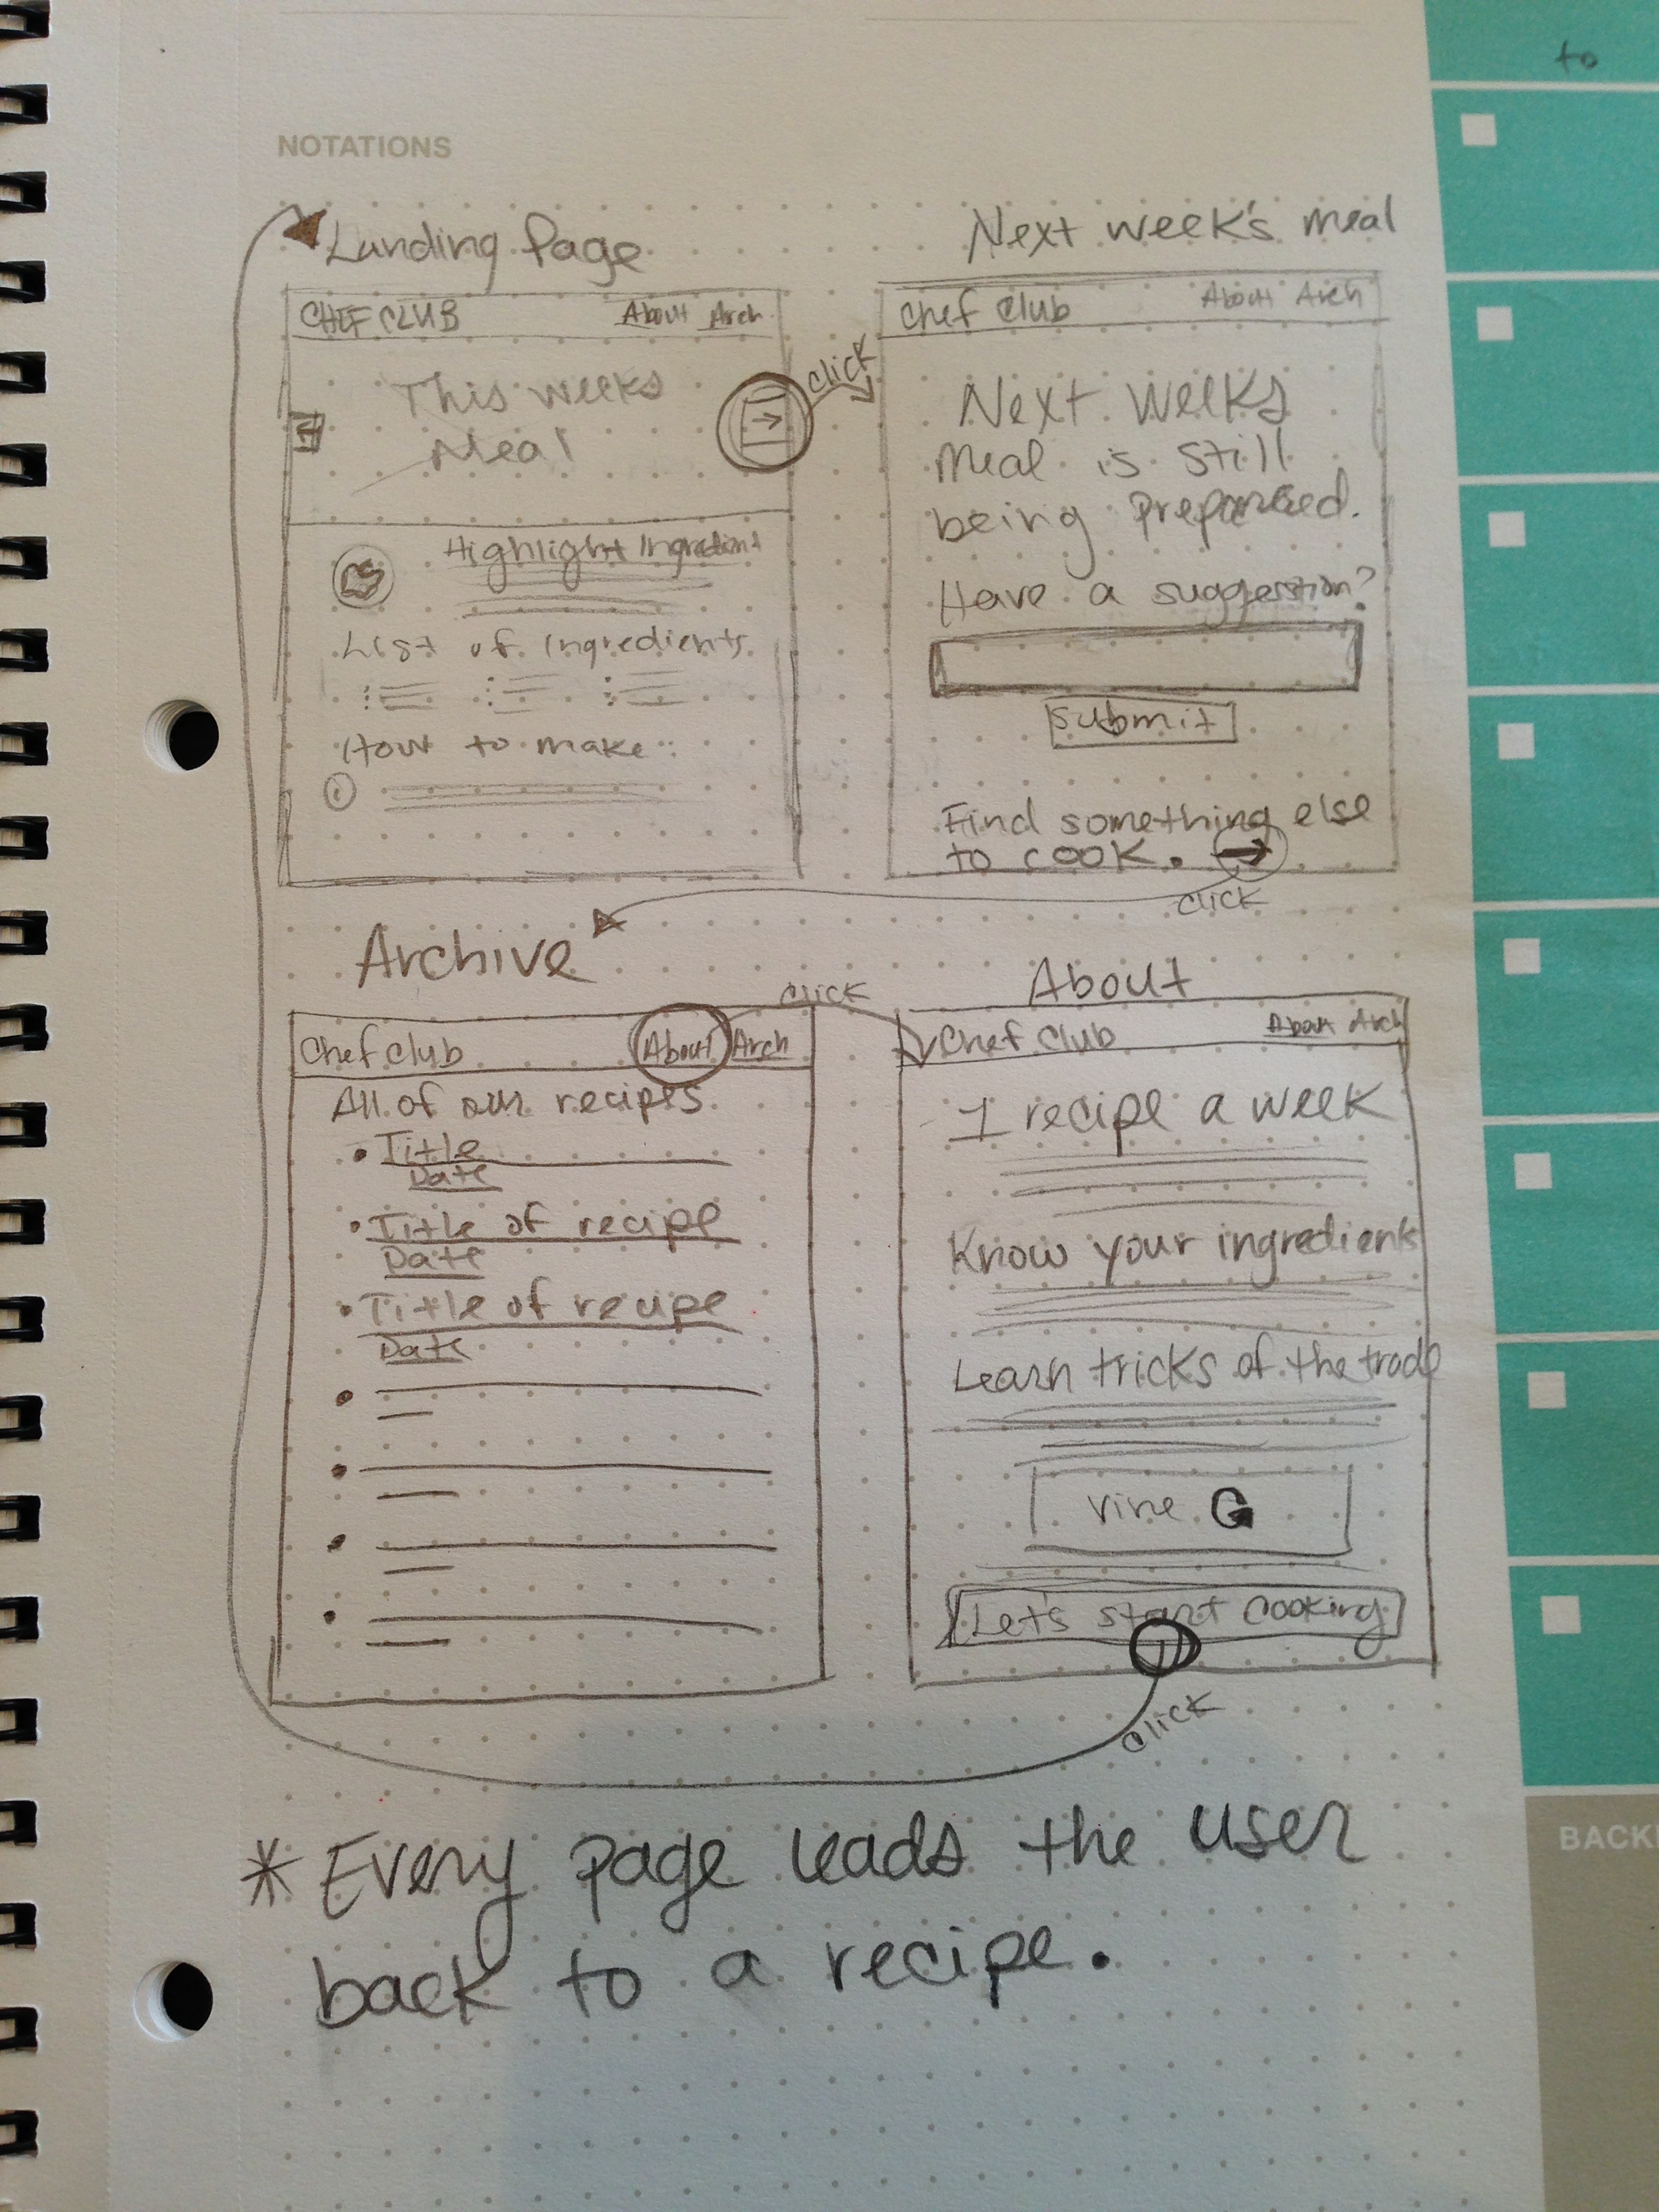 to
NOTATIONS
Landing Page
CHEF CLUB About Arch
This weeks
Meal
click
Highlight Ingredient
List of ingredients
How to make:
1
Next week's meal
Chef Club About Arch
Next weeks
meal is still
being prepared.
Have a suggestion?
submit
Find something else
to cook.
click
Archive
Chef club About Arch
click
All of our recipes
Title
Date
Title of recipe
Date
Title of recipe
Date
About
Chef Club About Arch
1 recipe a week
Know your ingredients
Learn tricks of the trade
vine
Let's start cooking
click
* Every page leads the user
back to a recipe.